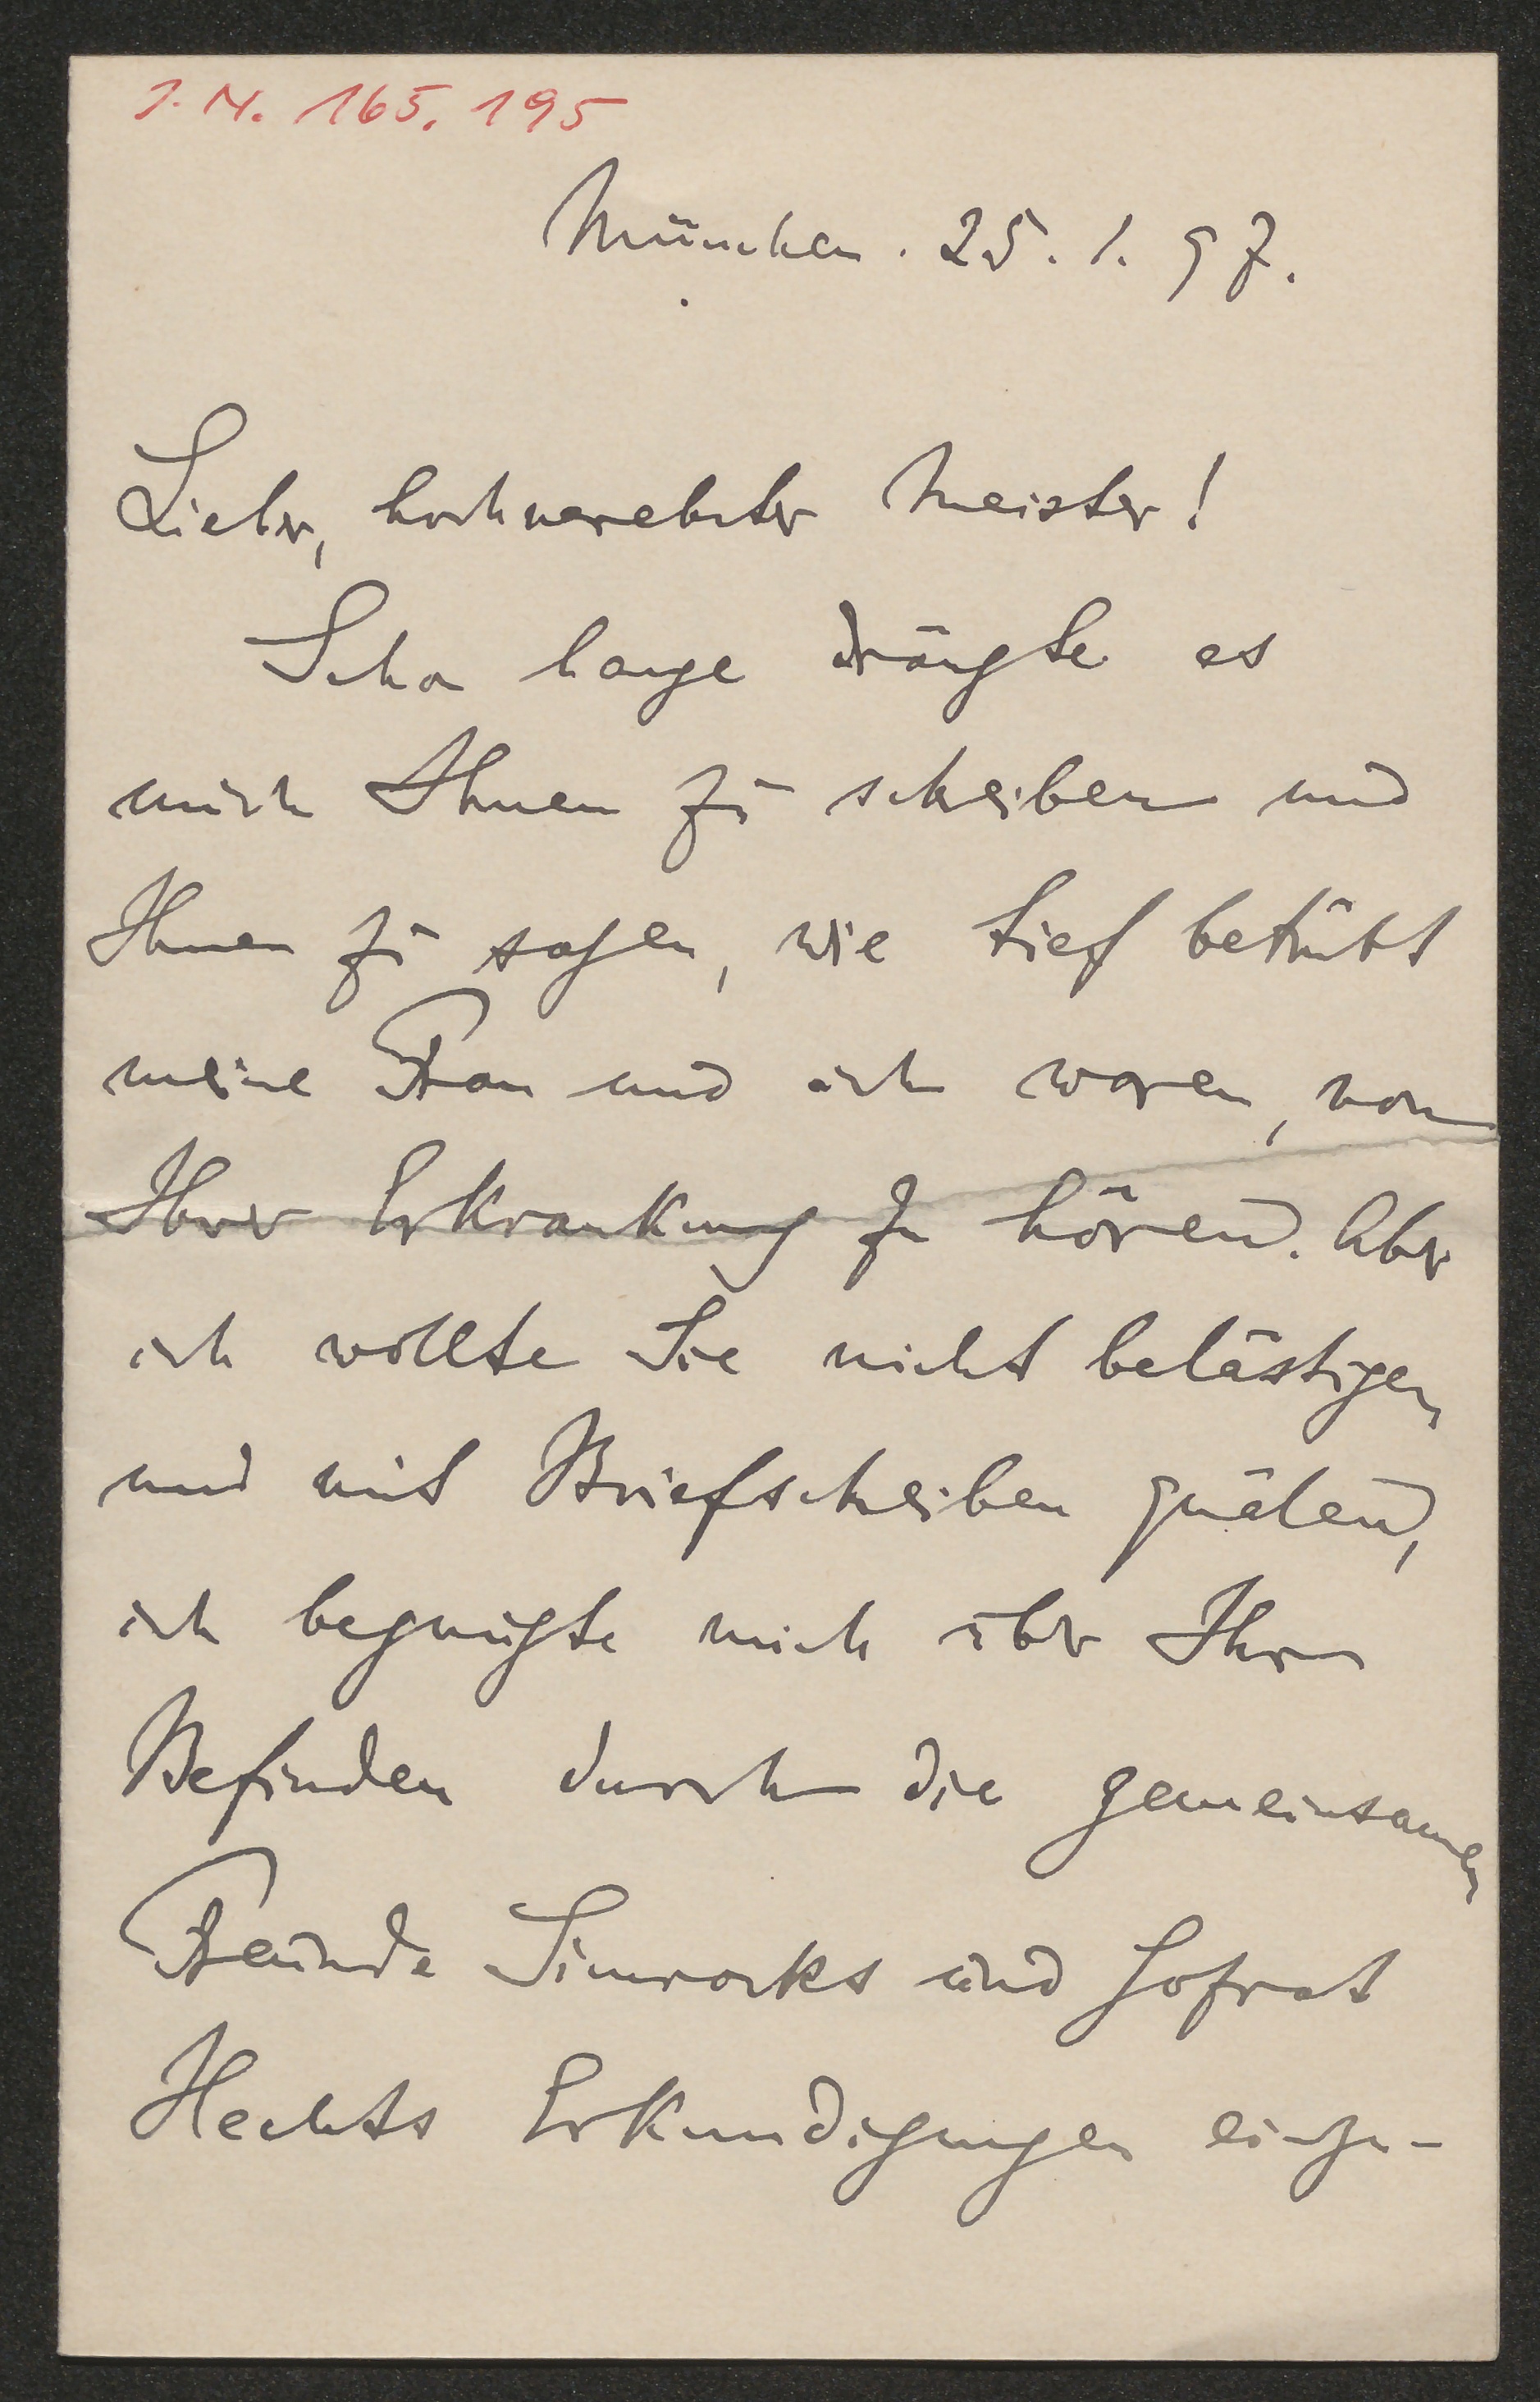 J. N. 165.195
München. 25. 1. 97.
Lieber, hochverehrter Meister!
Schon lange drängte es
mich Ihnen zu schreiben und
Ihnen zu sagen, wie tief betrübt
meine Frau und ich waren, von
Ihrer Erkrankung zu hören. Aber
ich wollte Sie nicht belästigen
und mit Briefschreiben quälen,
ich begnügte mich über Ihr
Befinden durch die gemeinsamen
Freunde Simrocks und Hofrat
Hechts Erkundigungen einzu-